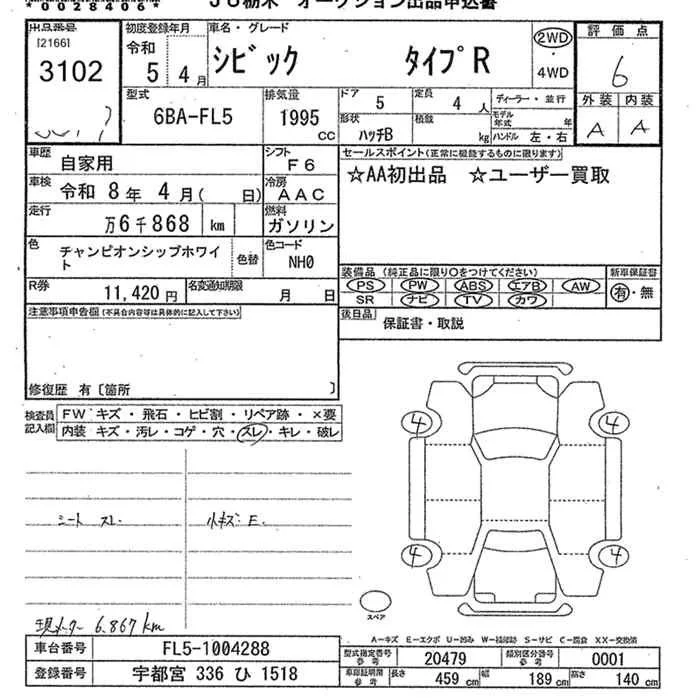 *00284064*
JU栃木 オークション出品申込書
出品番号
[21661
3102
初度登録年月
令和
5年4月
車名・グレード
シビック タイプR
2WD
・
4WD
評価点
6
外装 内装
A A
型式
6BA-FL5
排気量
1995
cc
ドア
5
定員
4人
形状
ハッチB
積載
kg
ディーラー・並行
モデル年式 年
ハンドル 左・右
車歴
自家用
シフト
F6
車検
令和 8年 4月( 日)
冷房
AAC
走行
万6千868 km
燃料
ガソリン
色
チャンピオンシップホワイト
色替
色コード
NH0
R券
11,420円
名変通知期限
月 日
セールスポイント(正常に機能するものに限ります)
☆AA初出品 ☆ユーザー買取
装備品(純正品に限り○をつけてください)
PS PW ABS エアB AW
SR ナビ TV カワ
新車保証書
有・無
後日品
保証書・取説
注意事項申告欄(不具合内容等は具体的に記入して下さい)
修復歴 有〔箇所 〕
検査員記入欄
FW キズ・飛石・ヒビ割・リペア跡・×要
内装 キズ・汚レ・コゲ・穴・スレ・キレ・破レ
シート スレ 小キズ E.
4 4
4 4
スペア
現メーター 6,867 km
A−キズ E−エクボ U−凹み W−補修跡 S−サビ C−腐食 XX−交換済
車台番号
FL5-1004288
登録番号
宇都宮 336 ひ 1518
型式指定番号
参考
20479
類別区分番号
参考
0001
車幅証明書
参考
長さ
459cm
幅
189cm
高さ
140cm